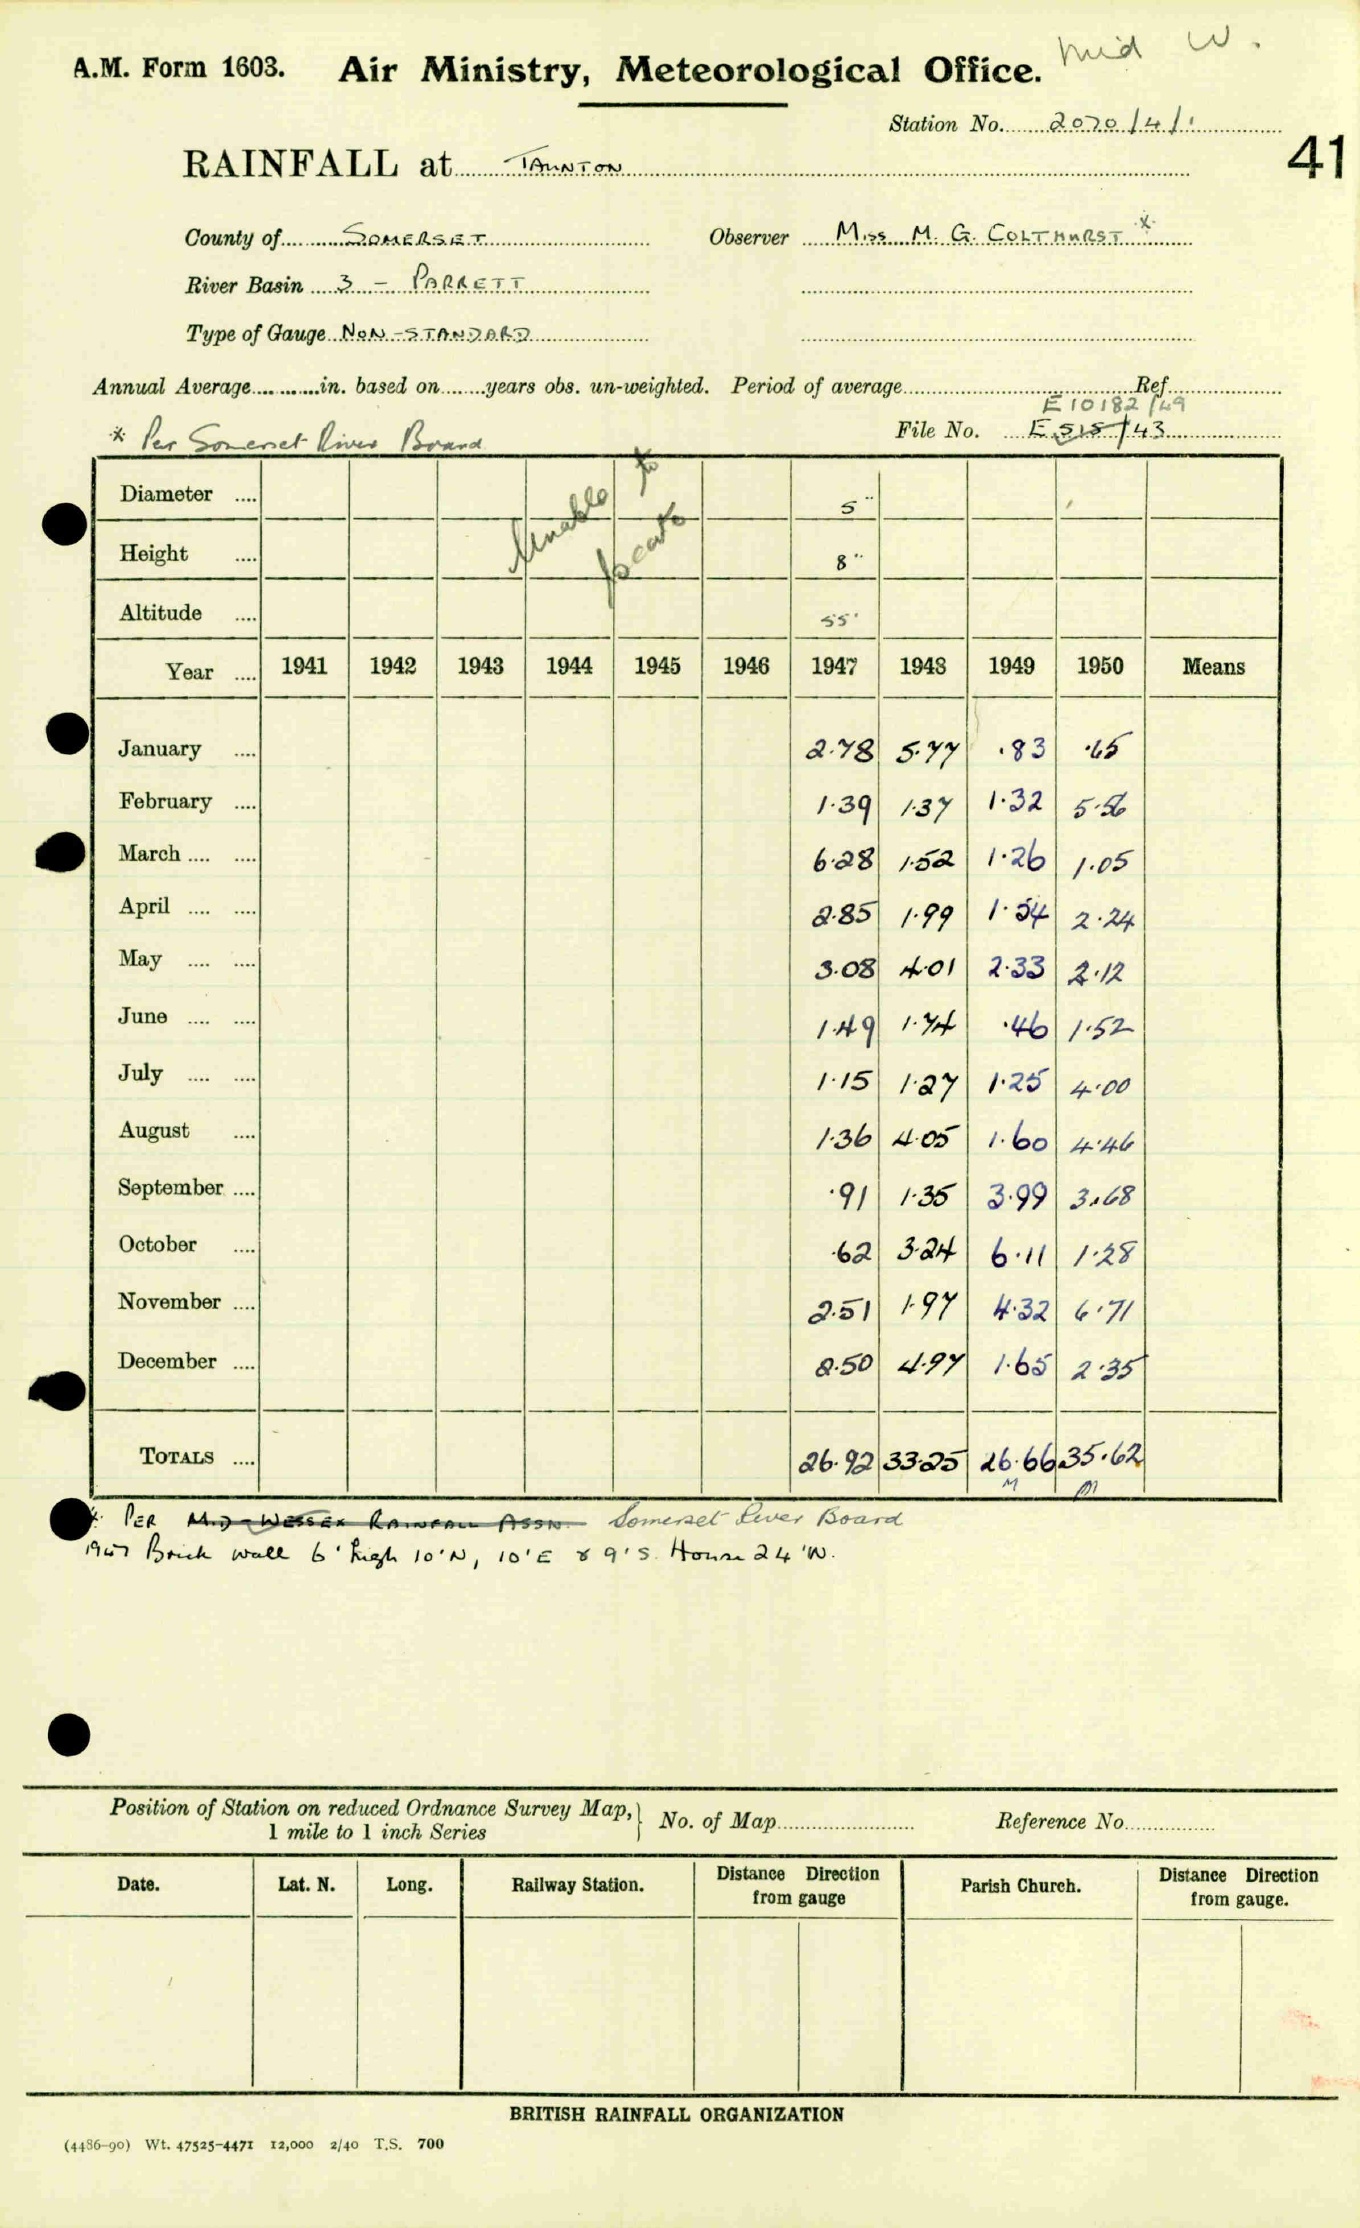 Mid W.
A.M. Form 1603. Air Ministry, Meteorological Office.
Station No. 2070/4/1
41
RAINFALL at TAUNTON
County of SOMERSET Observer Miss M. G. COLTHURST *
River Basin 3 - PARRETT
Type of Gauge NON-STANDARD
Annual Average in. based on years obs. un-weighted. Period of average Ref
E10182/49
* Per Somerset River Board File No. E515/43
Unable to locate
Diameter 5"
Height 8"
Altitude 55'
Year 1941 1942 1943 1944 1945 1946 1947 1948 1949 1950 Means
January 2.78 5.77 .83 .65
February 1.39 1.37 1.32 5.56
March 6.28 1.52 1.26 1.05
April 2.85 1.99 1.54 2.24
May 3.08 4.01 2.33 2.12
June 1.49 1.74 .46 1.52
July 1.15 1.27 1.25 4.00
August 1.36 4.05 1.60 4.46
September .91 1.35 3.99 3.68
October .62 3.24 6.11 1.28
November 2.51 1.97 4.32 6.71
December 2.50 4.97 1.65 2.35
TOTALS 26.92 33.25 26.66 35.62
M M
* PER MID-WESSEX RAINFALL ASSN. Somerset River Board
1947 Brick wall 6' high 10'N, 10'E & 9'S. House 24'W.
Position of Station on reduced Ordnance Survey Map, 1 mile to 1 inch Series } No. of Map Reference No.
Date. Lat. N. Long. Railway Station. Distance Direction from gauge Parish Church. Distance Direction from gauge.
BRITISH RAINFALL ORGANIZATION
(4486-90) Wt. 47525-4471 12,000 2/40 T.S. 700